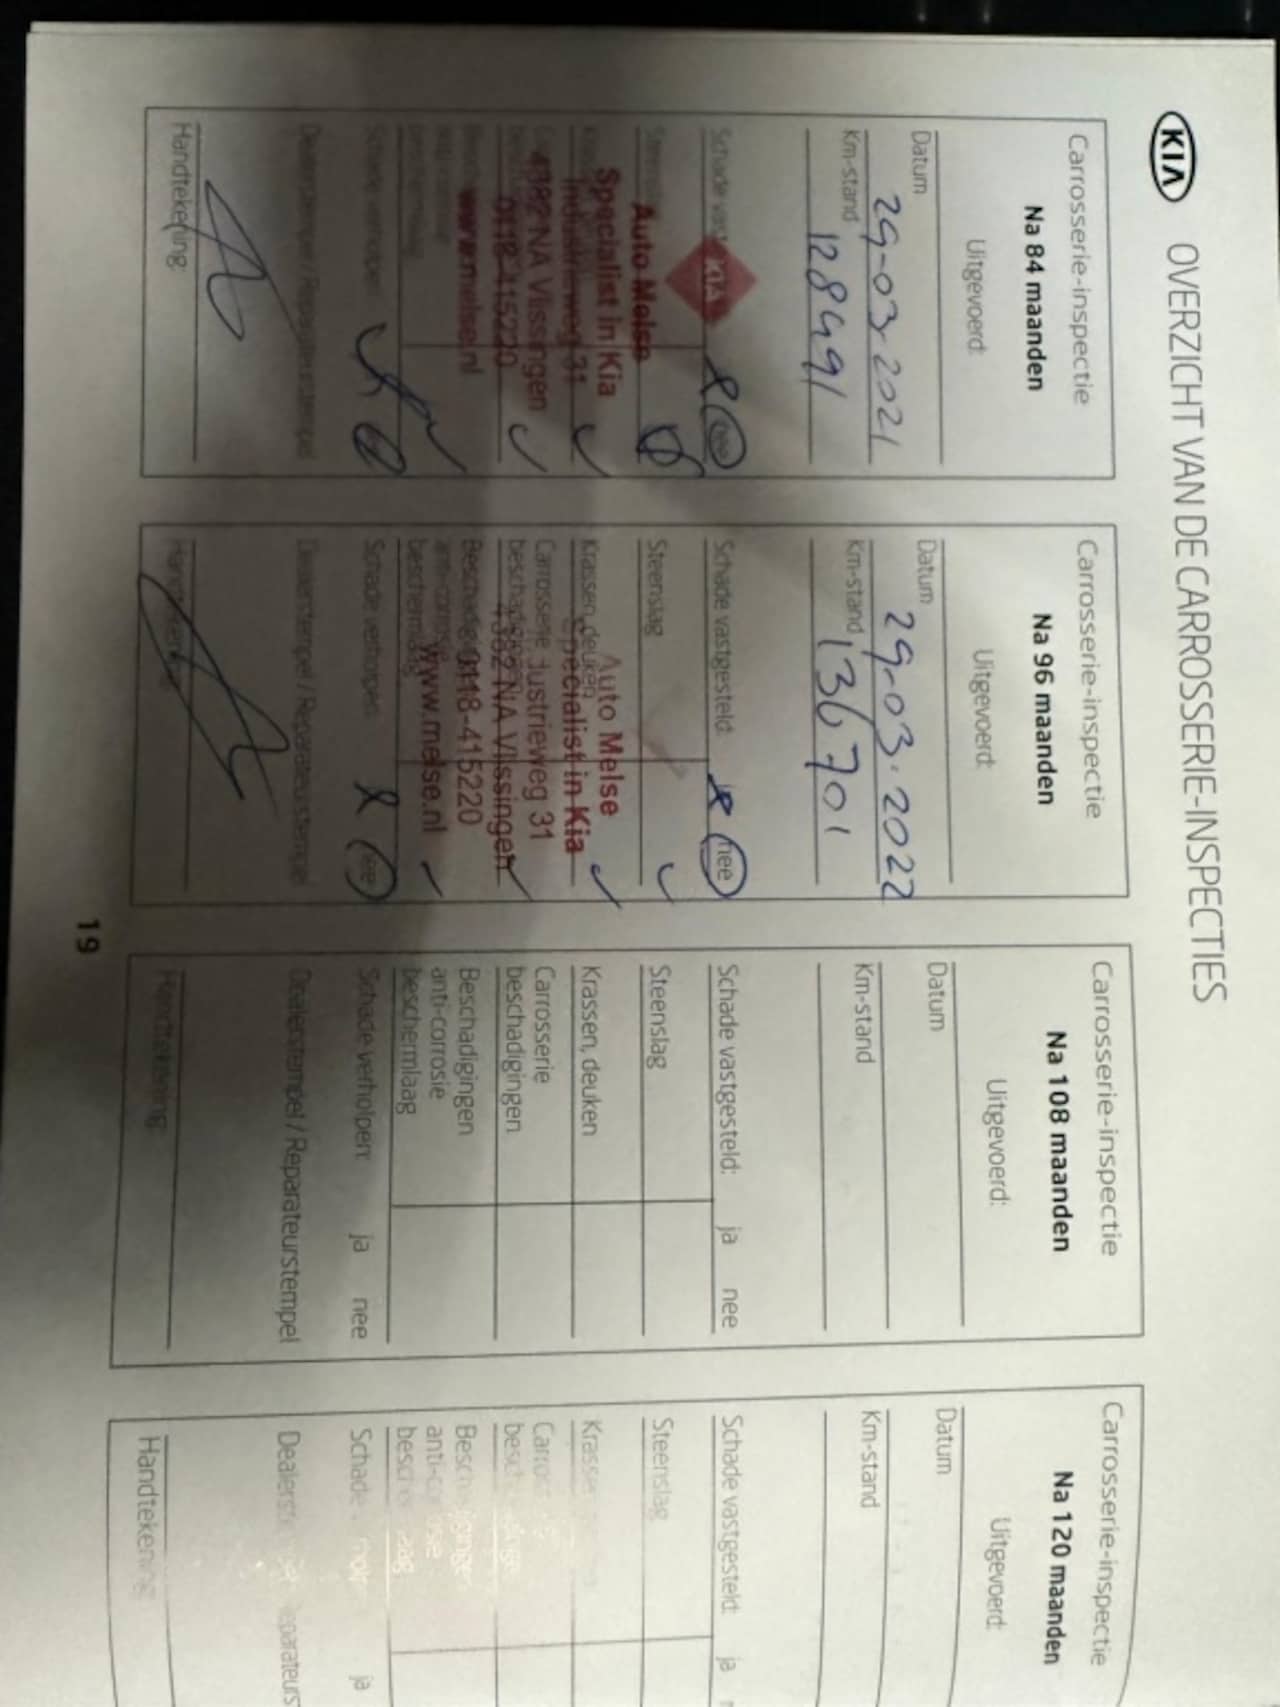 KIA OVERZICHT VAN DE CARROSSERIE-INSPECTIES
Carrosserie-inspectie
Na 84 maanden
Uitgevoerd:
Datum
29-03-2021
Km-stand
128991
Schade vast
nee
KIA
Auto Melse
Specialist in Kia
Industrieweg 31
4382 NA Vlissingen
0118-415220
www.melse.nl
Dealerstempel / Reparateurstempel
Handtekening:
Carrosserie-inspectie
Na 96 maanden
Uitgevoerd:
Datum
29-03-2022
Km-stand
136701
Schade vastgesteld:
nee
Steenslag
Krassen, deuken
Carrosserie
beschadigingen
Beschadig
anti-corrosie
beschermlaag
Auto Melse
Specialist in Kia
dustrieweg 31
4382 NA Vlissingen
0118-415220
www.melse.nl
Schade verholpen:
nee
Dealerstempel / Reparateurstempel
Handtekening:
Carrosserie-inspectie
Na 108 maanden
Uitgevoerd:
Datum
Km-stand
Schade vastgesteld: ja nee
Steenslag
Krassen, deuken
Carrosserie
beschadigingen
Beschadigingen
anti-corrosie
beschermlaag
Schade verholpen: ja nee
Dealerstempel / Reparateurstempel
Handtekening:
Carrosserie-inspectie
Na 120 maanden
Uitgevoerd:
Datum
Km-stand
Schade vastgesteld: ja
Steenslag
Schade ja
Handtekening
19